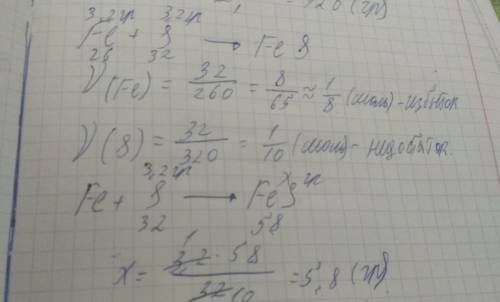 = 120 (гр)
3,2гр 3,2гр
Fe + S → FeS
26 32
ν(Fe) = 32/260 = 8/65 ≈ 1/8 (моль) - избыток
ν(S) = 32/320 = 1/10 (моль) - недостаток
3,2гр x гр
Fe + S → FeS
32 58
x = 3,2 · 58 / 32 10 = 5,8 (гр)